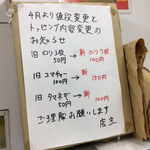 4月より値段変更と
トッピング内容変更の
お知らせ
旧 のり3枚 → 新 のり5枚
50円 100円
旧 コマチャー → 新
100円 150円
旧 タマネギ → 新
50円 100円
ご理解お願いします
店主